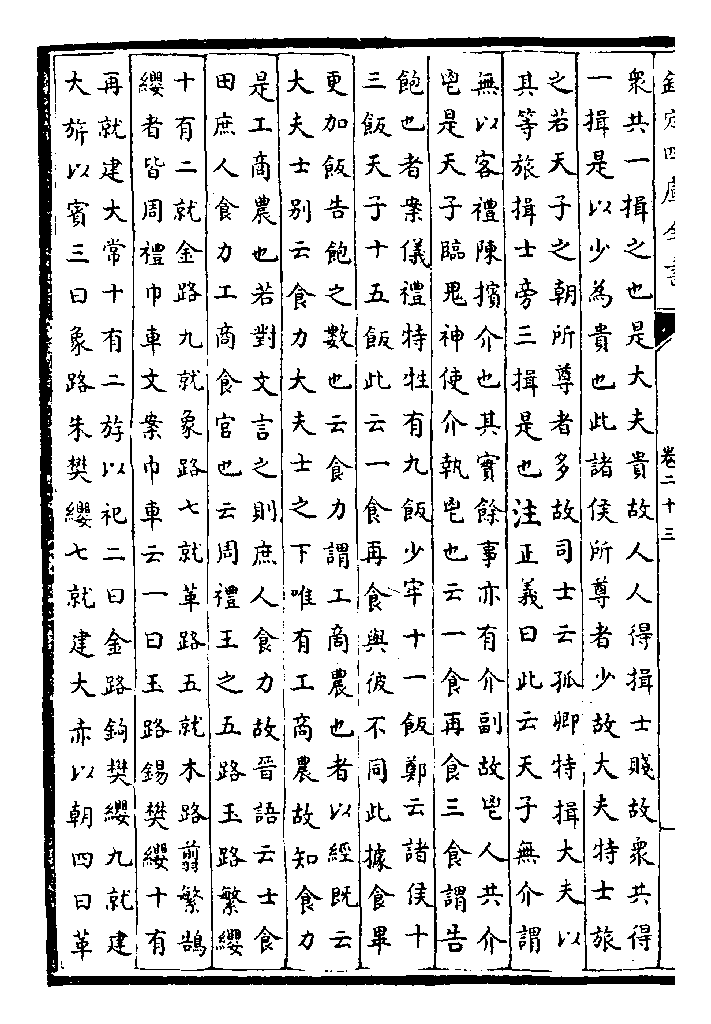 欽定四庫全書
卷二十三
衆共一揖之也是大夫貴故人人得揖士賤故衆共得
一揖是以少為貴也此諸侯所尊者少故大夫特士旅
之若天子之朝所尊者多故司士云孤卿特揖大夫以
其等旅揖士旁三揖是也注正義曰此云天子無介謂
無以客禮陳擯介也其實餘事亦有介副故鬯人共介
鬯是天子臨鬼神使介執鬯也云一食再食三食謂告
飽也者案儀禮特牲有九飯少牢十一飯鄭云諸侯十
三飯天子十五飯此云一食再食與彼不同此據食畢
更加飯告飽之數也云食力謂工商農也者以經既云
大夫士別云食力大夫士之下唯有工商農故知食力
是工商農也若對文言之則庶人食力故晉語云士食
田庶人食力工商食官也云周禮王之五路玉路繁纓
十有二就金路九就象路七就革路五就木路翦繁鵠
纓者皆周禮巾車文案巾車云一曰玉路錫樊纓十有
再就建大常十有二斿以祀二曰金路鉤樊纓九就建
大旂以賓三曰象路朱樊纓七就建大赤以朝四曰革